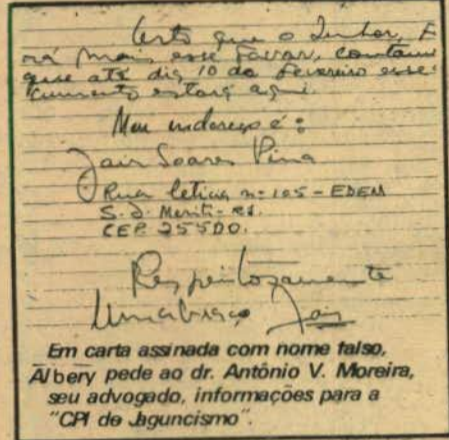 Certo que o Senhor, f
rá mais esse favor, contam
que até dia 10 de Fevereiro esse
cumento estará aqui.
Meu endereço é:
Jair Soares Pina
Rua Leticia nº 105 - EDEM
S. J. Meriti - RJ.
CEP. 25500.
Respeitosamente
Um abraço Jair
Em carta assinada com nome falso,
Albery pede ao dr. Antônio V. Moreira,
seu advogado, informações para a
"CPI de Jaguncismo".